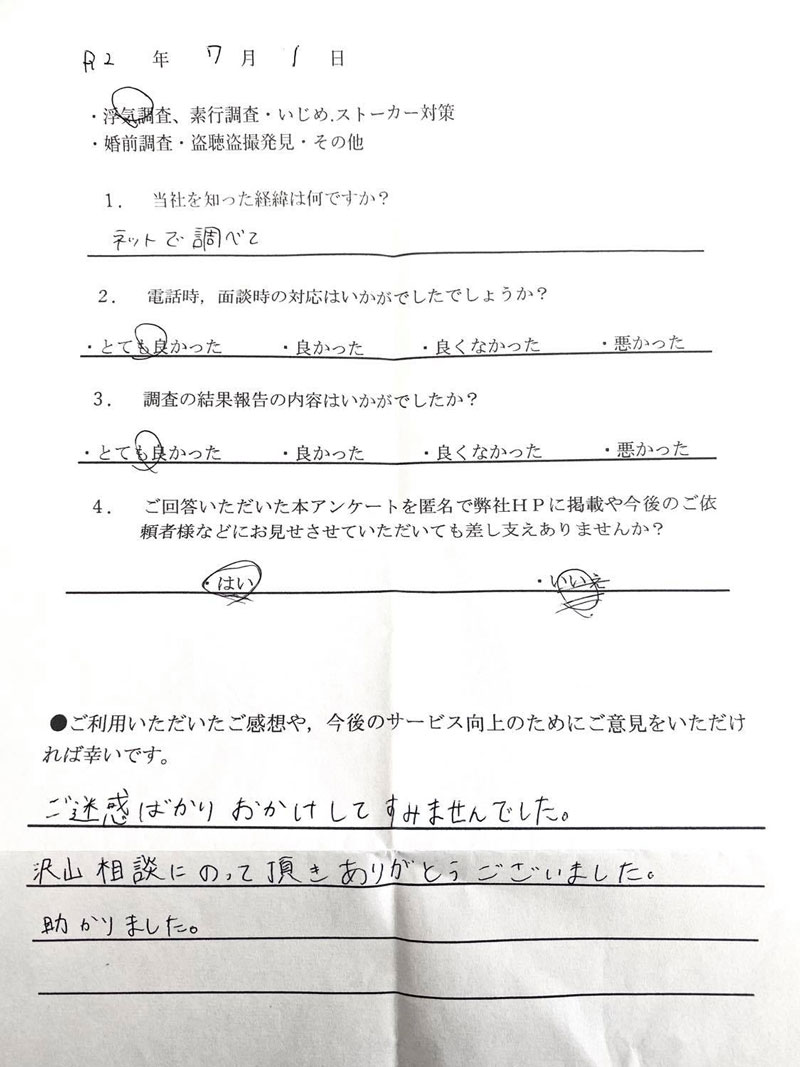 R2 年 7 月 1 日
・浮気調査、素行調査・いじめ.ストーカー対策
・婚前調査・盗聴盗撮発見・その他
1. 当社を知った経緯は何ですか？
ネットで調べて
2. 電話時，面談時の対応はいかがでしたでしょうか？
・とても良かった ・良かった ・良くなかった ・悪かった
3. 調査の結果報告の内容はいかがでしたか？
・とても良かった ・良かった ・良くなかった ・悪かった
4. ご回答いただいた本アンケートを匿名で弊社ＨＰに掲載や今後のご依
頼者様などにお見せさせていただいても差し支えありませんか？
・はい ・いいえ
●ご利用いただいたご感想や，今後のサービス向上のためにご意見をいただけ
れば幸いです。
ご迷惑ばかりおかけしてすみませんでした。
沢山相談にのって頂きありがとうございました。
助かりました。